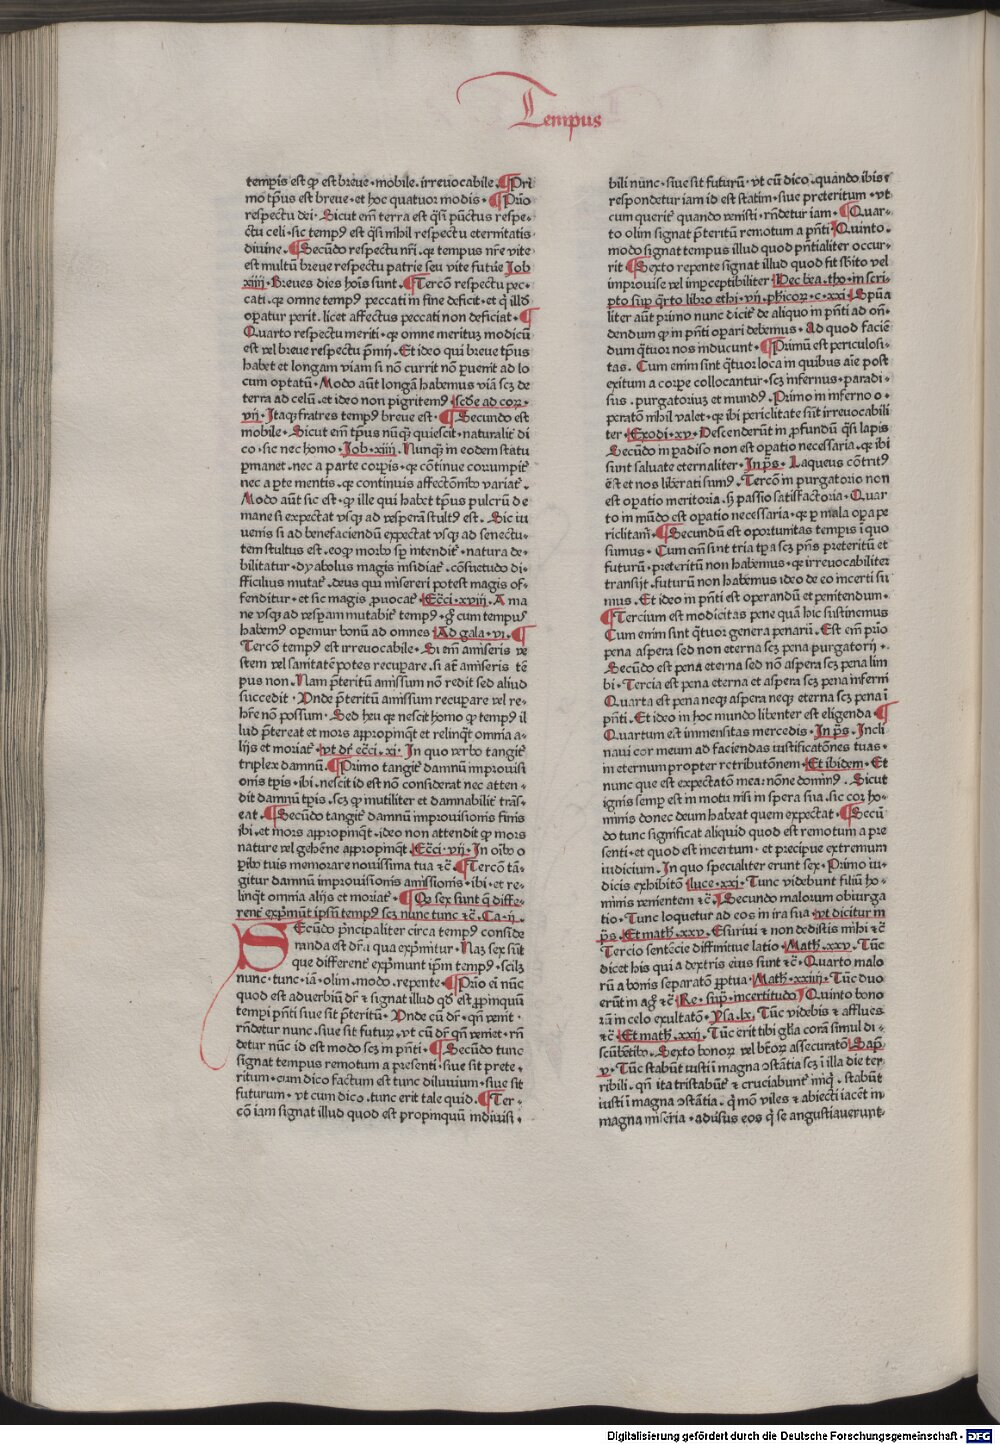 Tempus
temꝑis est ꝙ est breue · mobile · irreuocabile · ¶ Pri
mo tp̄us est breue · et hoc quatuor modis · ¶ Prīo
respectu dei · Sicut em̄ terra est q̄si pūctus respe⸗
ctu celi · sic tempꝰ est q̄si nihil respectu eternitatis
diuine · ¶ Secūdo respectu nr̄i · qꝛ tempus nr̄e vite
est multū breue respectu patrie seu vite future Job
xiiij · Breues dies hoīs sunt · ¶ Terco͞ respectu pec⸗
cati · qꝛ omne tempꝰ peccati in fine deficit · et qͥ illd̄
oꝑatur perit · licet affectus peccati non deficiat · ¶
Quarto respectu meriti · qꝛ omne meritum modicū
est vel breue respectu p̄mij · Et ideo qui breue tp̄us
habet et longam viam si nō currit nō ꝑuenit ad lo
cum optatū · Modo aūt longā habemus viā scꝫ de
terra ad celū · et ideo non pigritemꝰ sc̄de ad cor ·
vij · Itaqꝫ fratres tempꝰ breue est · ¶ Secundo est
mobile · Sicut em̄ tp̄us nūqꝫ quiescit · naturalit̄ di
co · sic nec homo · Job · xiiij · Nunqꝫ in eodem statu
ꝑmanet · nec a parte corꝑis · qꝛ cōtinue corrumpit̄
nec a ꝑte mentis · qꝛ continuis affectōnibꝰ variat̄ ·
Modo aūt sic est · ꝙ ille qui habet tp̄us pulcrū de
mane si expectat vsqꝫ ad vesperā stultꝰ est · Sic iu
uenis si ad benefaciendū expectat vsqꝫ ad senectu⸗
tem stultus est · eoqꝫ morbꝰ sꝑ intendit̄ · natura de⸗
bilitatur · dyabolus magis insidiat̄ · cōsuetudo di⸗
fficilius mutat̄ · deus qui misereri potest magis of⸗
fenditur · et sic magis ꝓuocat̄ · Ecc̄i · xviij · A ma
ne vsqꝫ ad vesꝑam mutabit̄ tempꝰ · gͦ cum tempꝰ
habemꝰ oꝑemur bonū ad omnes Ad gala · vi · ¶
Tercō tempꝰ est irreuocabile · Si em̄ amiseris ve
stem vel sanitatē potes recuꝑare · si aūt amiseris tē
pus non · Nam p̄teritū amissum nō redit sed aliud
succedit · Vnde p̄teritū amissum recuꝑare vel re⸗
hr̄e nō possum · Sed heu qꝛ nescit homo ꝙ tempꝰ il
lud p̄tereat et mors appropinqͣt et relinqͣt omnia a⸗
lijs et moriat̄ · vt dr̄ ecc̄i · xi · In quo verbo tangit̄
triplex damnū · ¶ Primo tangit̄ damnū improuisi
onis tꝑis · ibi · nescit id est nō considerat nec atten⸗
dit damnū tꝑis · scꝫ ꝙ inutiliter et damnabilit̄ trās⸗
eat · ¶ Secūdo tangit̄ damnū improuisionis finis
ibi · et mors appropinqͣt · ideo non attendit ꝙ mors
nature vel gehēne appropinqͣt · Ecc̄i · vij · In oībꝰ o
ꝑibꝰ tuis memorare nouissima tua ⁊c̄ · ¶ Tercō tā⸗
gitur damnū improuisionis amissionis · ibi · et re⸗
linqͣt omnia alijs et moriat̄ · ¶ Qꝛ sex sunt q̄ diffe⸗
rent̄ exp̄mūt ipsū tempꝰ scꝫ nunc tunc ⁊c̄ · Ca · ij ·
SEcūdo p̄ncipaliter circa tempꝰ conside
randa est dr̄ia qua exp̄mitur · Nam sex sūt
que different̄ exp̄munt ip̄m tempꝰ · scilꝫ
nunc · tunc · iā · olim · modo · repente · ¶ Prīo ei nūc
quod est aduerbiū dr̄ ⁊ signat illud qd̄ est ꝓpinquū
temꝑi p̄nti siue sit p̄teritū · Vnde cū dr̄ · qn̄ venit ·
rn̄detur nunc · siue sit futuꝝ · vt cū dr̄ qn̄ veniet · rn̄
detur nūc id est modo scꝫ in p̄nti · ¶ Secūdo tunc
signat tempus remotum a presenti · siue sit prete⸗
ritum · cum dico factum est tunc diluuium · siue sit
futurum · vt cum dico · tunc erit tale quid · ¶ Ter⸗
cō iam signat illud quod est propinquū indiuisi ·
bili nūnc · siue sit futurū · vt cū dico · quando ibis ⁊
respondetur iam id est statim · siue preteritum · vt
cum querit̄ quando venisti · rn̄detur iam · ¶ Quar⸗
to olim signat p̄teritū remotum a p̄nti Quinto ·
modo signat tempus illud quod p̄ntialiter occur⸗
rit ¶ Sexto repente signat illud quod fit sb̄ito vel
improuise vel imꝑceptibiliter Hec bea · tho · in scri⸗
pto suꝑ q̄rto libro ethi · vij · ph̄icoꝝ · c · xxi Sp̄ua
liter aūt primo nunc dicit̄ de aliquo in p̄nti ad on̄⸗
dendum ꝙ in p̄nti oꝑari debemus · Ad quod faciē
dum q̄tuor nos inducunt · ¶ Primū est periculosi⸗
tas · Cum enim sint q̄tuor loca in quibus aīe post
exitum a corꝑe collocantur · scꝫ infernus · paradi⸗
sus · purgatorium et mundꝰ · Primo in inferno o⸗
peratō nihil valet · qꝛ ibi periclitate sūt irreuocabili
ter · Exodi · xv · Descenderūt in ꝓfundū q̄si lapis
Secūdo in ꝑadiso non est oꝑatio necessaria · qꝛ ibi
sunt saluate eternaliter · In ps̄ · Laqueus cōtritꝰ
ē st et nos liberati sumꝰ · Tercō in purgatorio non
est oꝑatio meritoria · sꝫ passio satisfactoria · Quar
to in mūdo est oꝑatio necessaria · qꝛ ꝑ mala oꝑa ꝑe
riclitam̄ · ¶ Secundū est oportunitas temꝑis ī quo
sumus · Cum em̄ sint tria tꝑa scꝫ p̄ns preteritū et
futurū · preteritū non habemus · qꝛ irreuocabiliter
transijt · futurū non habemus ideo de eo incerti su
mus · Et ideo in p̄nti est operandū et penitendum ·
¶ Tercium est modicitas pene quā hic sustinemus
Cum enim sint q̄tuor genera penarū · Est em̄ prīo
pena aspera sed non eterna scꝫ pena purgatorij ·
Secūdo est pena eterna sed nō aspera scꝫ pena lim
bi · Tercia est pena eterna et aspera scꝫ pena inferni
Quarta est pena neqꝫ aspera neqꝫ eterna scꝫ pena ī
p̄nti · Et ideo in hoc mundo libenter est eligenda · ¶
Quartum est immensitas mercedis · In ps̄ · Incli
naui cor meum ad faciendas iustificatōnes tuas ·
in eternum propter retributōnem · Et ibidem · Et
nunc que est expectatō mea: nōne dominꝰ · Sicut
ignis semꝑ est in motu nisi in spera sua · sic cor ho⸗
minis donec deum habeat quem expectat · ¶ Secū
do tunc significat aliquid quod est remotum a pre
senti · et quod est incertum · et precipue extremum
iudicium · In quo specialiter erunt sex · Primo iu⸗
dicis exhibitō luce · xxi · Tunc videbunt filiū ho⸗
minis venientem ⁊c̄ · Secundo malorum obiurga
tio · Tunc loquetur ad eos in ira sua · vt dicitur in
ps̄ · Et math̄ · xxv · Esuriui ⁊ non dedistis mihi ⁊c̄
Tercio sentēcie diffinitiue latio · Math̄ · xxv · Tūc
dicet his qui a dextris eius sunt ⁊c̄ · Quarto malo
rū a bonis separatō ꝑpetua · Math̄ · xxiiij · Tūc duo
erūt in agꝰ ⁊c̄ Re · suꝑ · incertitudo Quinto bono
rū in celo exultatō · Ysa · lx · Tūc videbis ⁊ afflues
⁊c̄ · Et math̄ · xxij · Tūc erit tibi gl̄ia corā simul di⸗
scūbētibꝰ · Sexto bonoꝝ vel bt̄oꝝ assecuratō Sap̄
v · Tūc stabūt iusti ī magna ↄstātia scꝫ ī illa die ter
ribili · qn̄ ita tristabūt̄ ⁊ cruciabunt̄ iniqͥ · stabūt
iusti ī magna ↄstātia · qͥ mō viles ⁊ abiecti iacēt in
magna miseria · aduˢsus eos qͥ se angustiauerunt
Digitalisierung gefördert durch die Deutsche Forschungsgemeinschaft · DFG